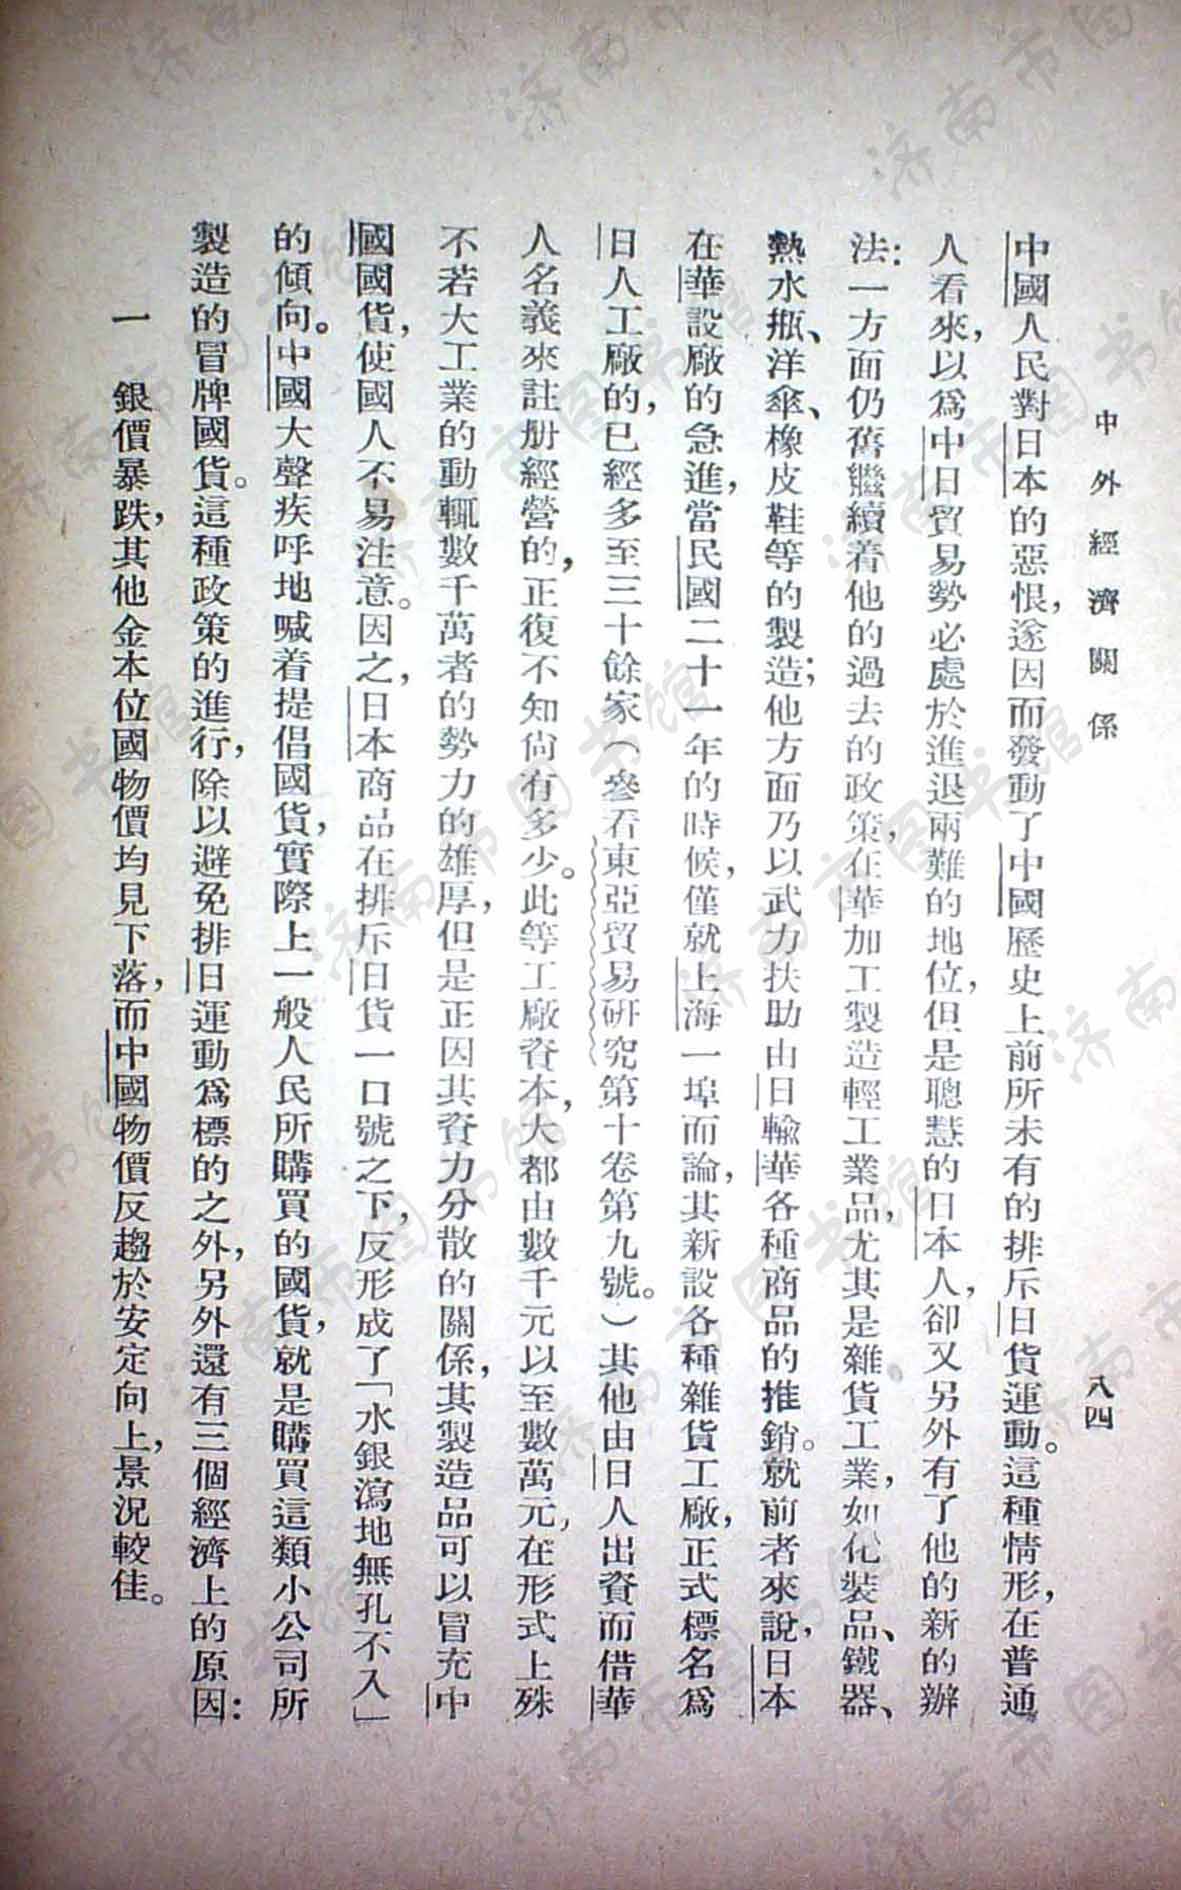 中外經濟關係
八四
中國人民對日本的惡恨，遂因而發動了中國歷史上前所未有的排斥日貨運動。這種情形，在普通
人看來，以爲中日貿易勢必處於進退兩難的地位，但是聰慧的日本人，卻又另外有了他的新的辦
法：一方面仍舊繼續着他的過去的政策，在華加工製造輕工業品，尤其是雜貨工業，如化裝品、鐵器、
熱水瓶、洋傘、橡皮鞋等的製造；他方面乃以武力扶助由日輸華各種商品的推銷。就前者來說，日本
在華設廠的急進，當民國二十一年的時候，僅就上海一埠而論，其新設各種雜貨工廠，正式標名爲
日人工廠的，已經多至三十餘家（參看東亞貿易研究第十卷第九號。）其他由日人出資而借華
人名義來註册經營的，正復不知尚有多少。此等工廠資本，大都由數千元以至數萬元，在形式上殊
不若大工業的動輒數千萬者的勢力的雄厚，但是正因其資力分散的關係，其製造品可以冒充中
國國貨，使國人不易注意。因之，日本商品在排斥日貨一口號之下，反形成了「水銀瀉地無孔不入」
的傾向。中國大聲疾呼地喊着提倡國貨，實際上一般人民所購買的國貨，就是購買這類小公司所
製造的冒牌國貨。這種政策的進行，除以避免排日運動爲標的之外，另外還有三個經濟上的原因：
一　銀價暴跌，其他金本位國物價均見下落，而中國物價反趨於安定向上，景況較佳。
济南市图书馆